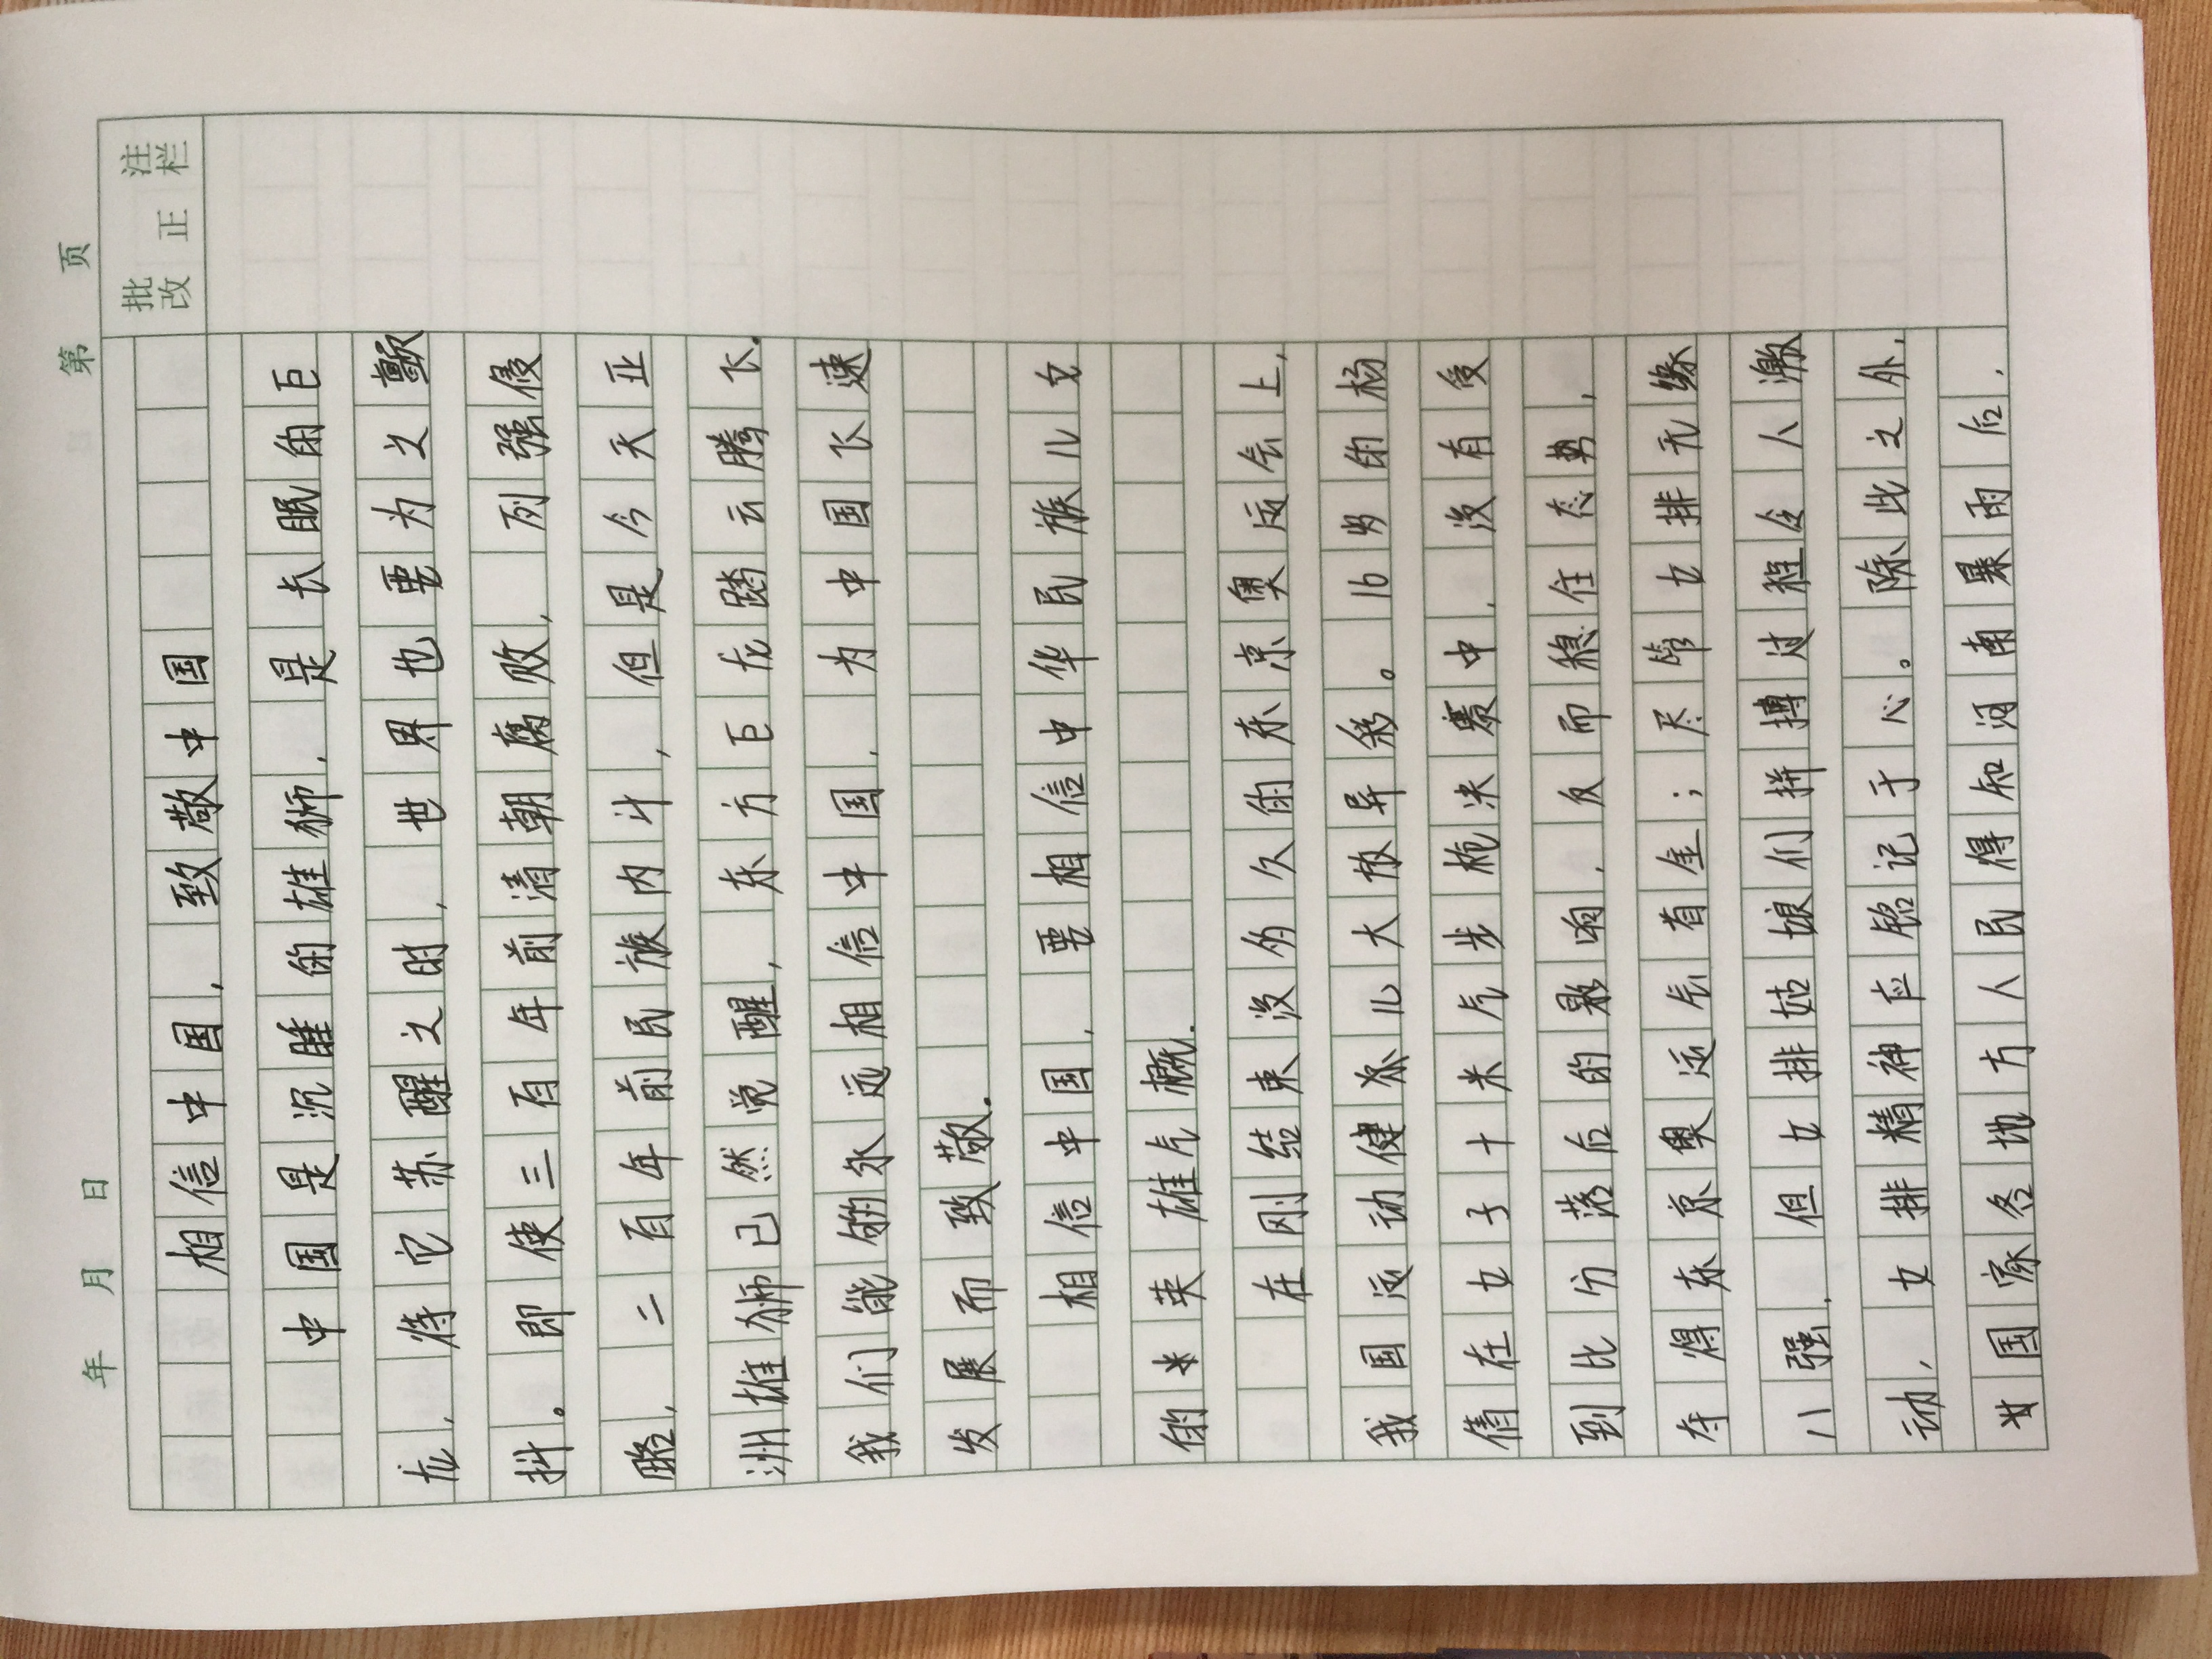 年 月 日 第 页
批 注
改 正 栏
相信中国，致敬中国
中国是沉睡的雄狮，是长眠的巨
龙，待它苏醒之时，世界也要为之颤
抖。即使三百年前清朝腐败，列强侵
略，二百年前民族内斗，但是今天亚
洲雄狮已然觉醒，东方巨龙踏云腾飞.
我们能够永远相信中国，为中国飞速
发展而致敬.
相信中国，要相信中华民族儿女
的英雄气概.
在刚结束没多久的东京奥运会上，
我国运动健儿大放异彩。16岁的杨
倩在女子十米气步枪决赛中，没有受
到比分落后的影响，反而稳住态势，
夺得东京奥运会首金；尽管女排无缘
八强，但女排姑娘们拼搏过程令人激
动，女排精神应铭记于心。除此之外，
国家各地方人民得知河南暴雨后，